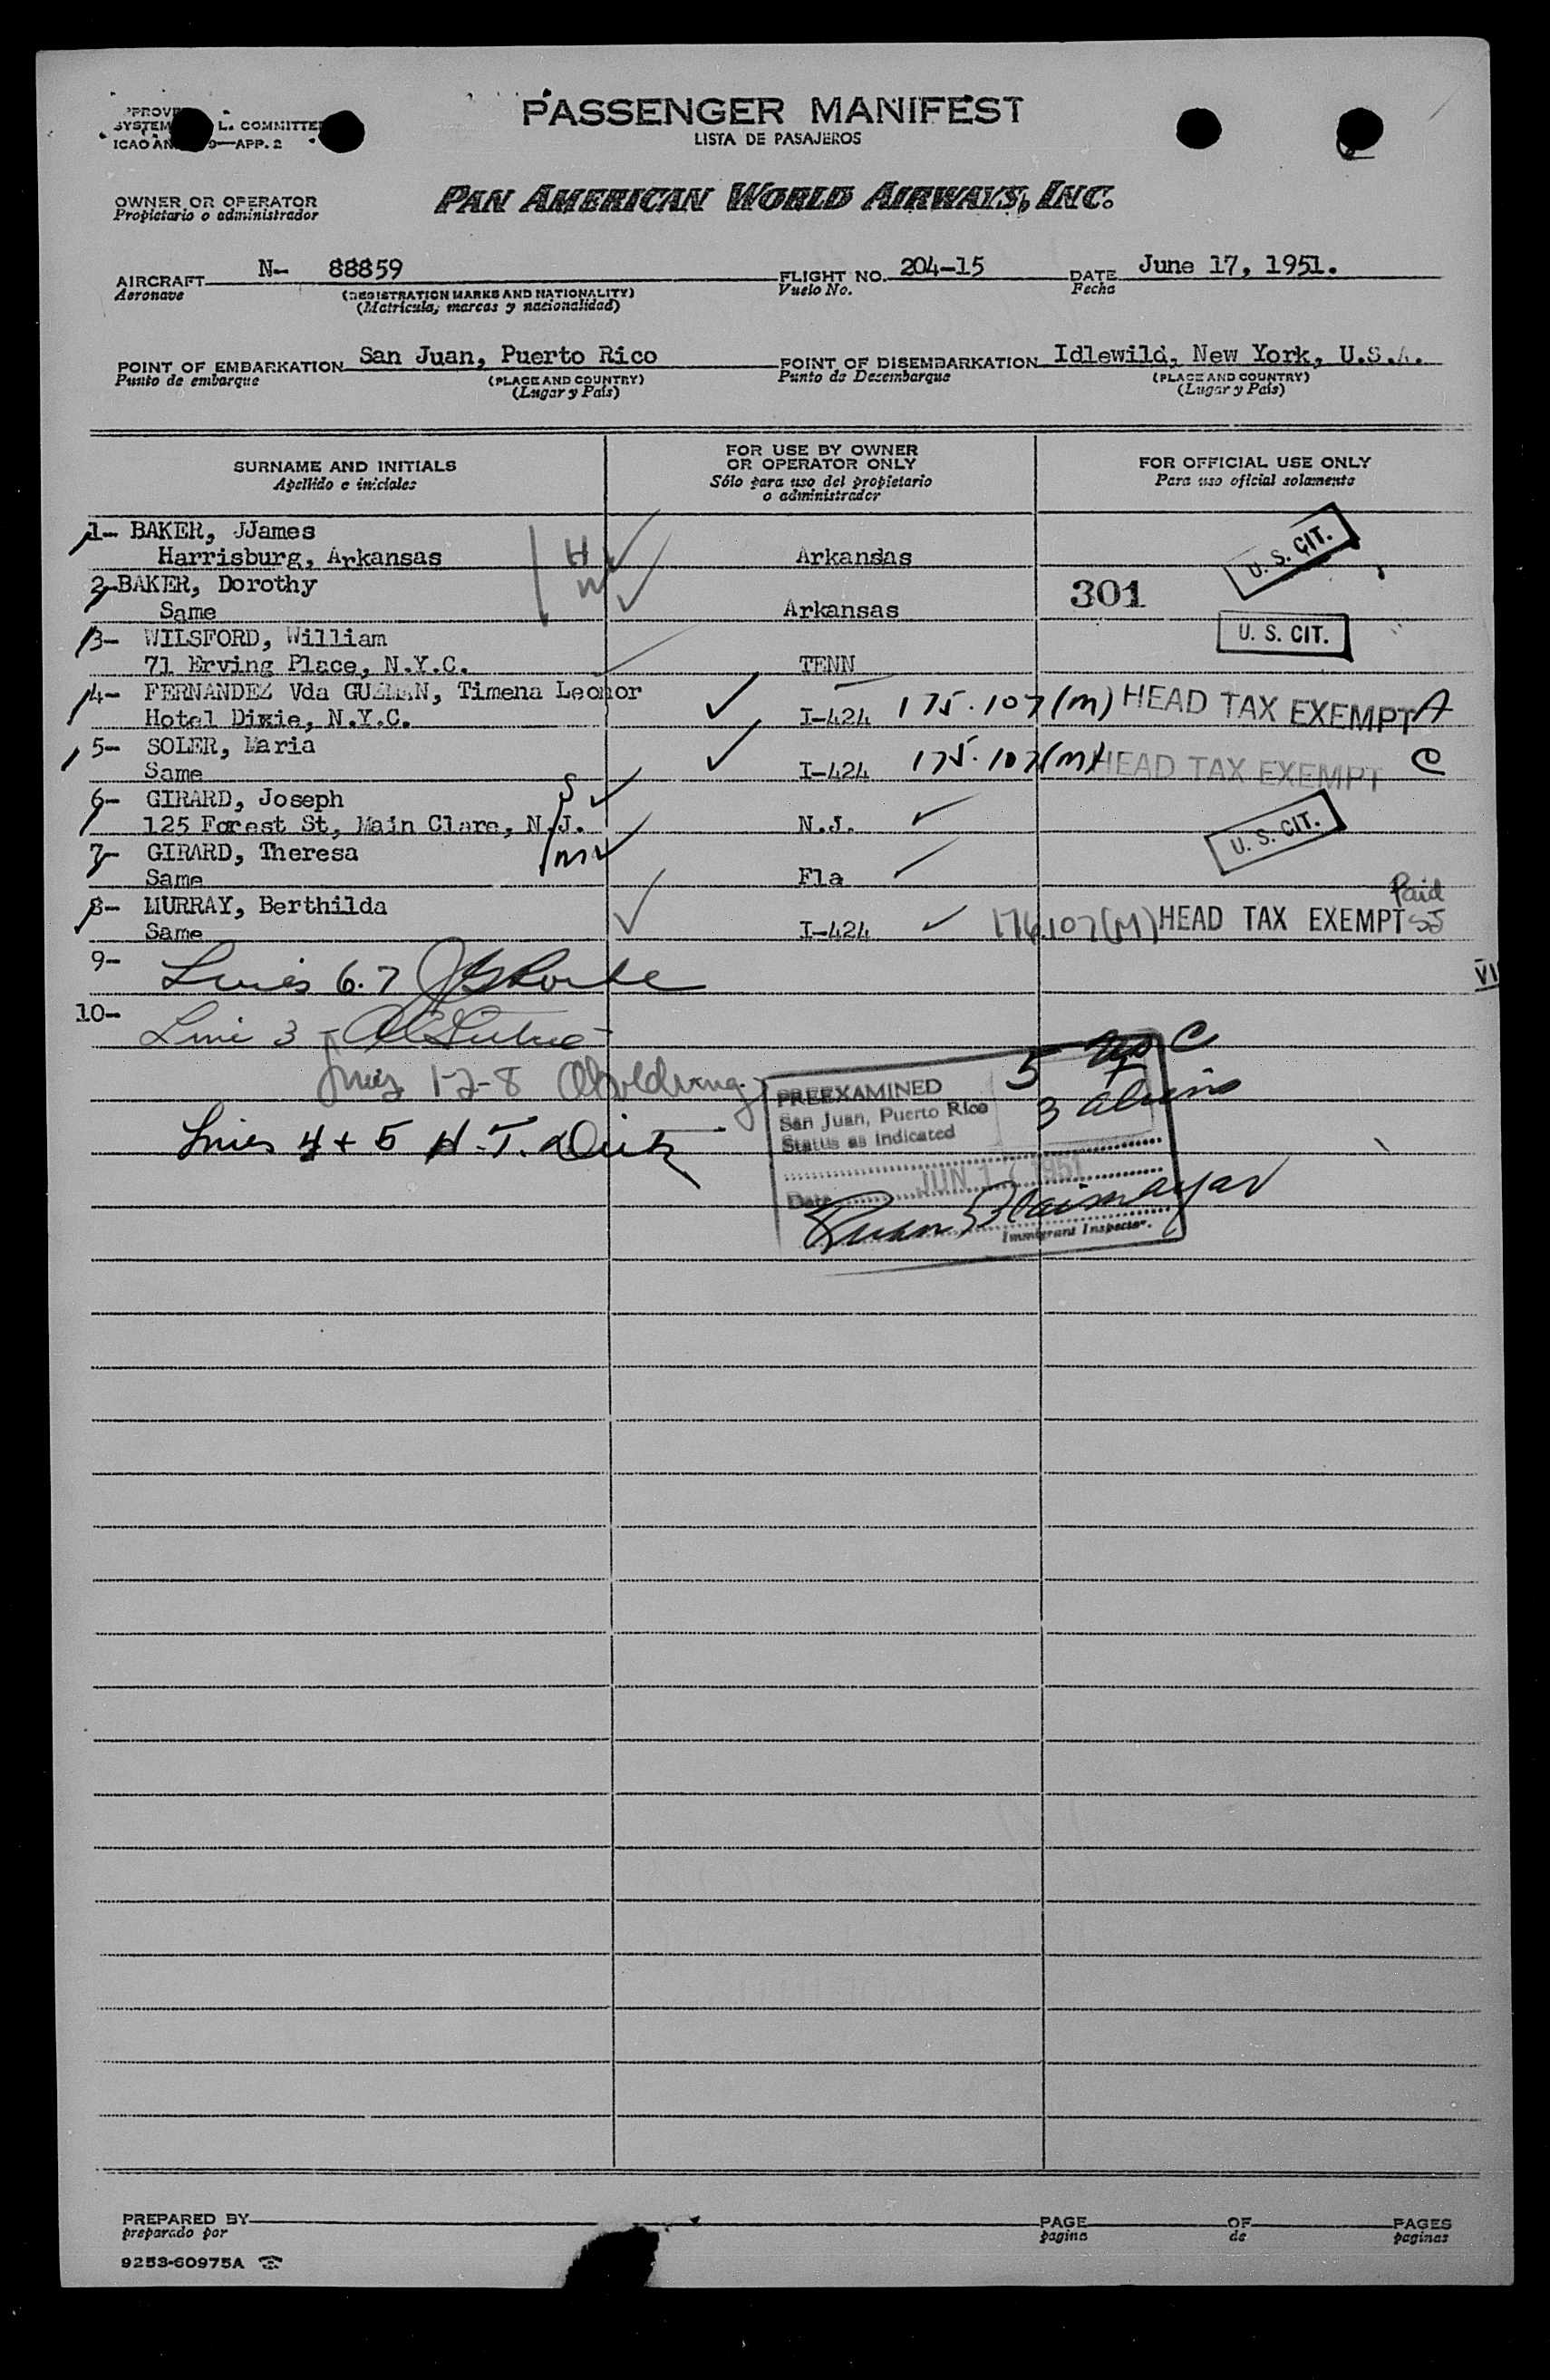 PASSENGER MANIFEST
LISTA DE PASAJEROS
L. COMMITTEE
ICAO AN 9—APP. 2
OWNER OR OPERATOR
Propietario o administrador
PAN AMERICAN WORLD AIRWAYS, INC.
AIRCRAFT N- 88859 FLIGHT NO. 204-15 DATE June 17, 1951.
Aeronave (REGISTRATION MARKS AND NATIONALITY) Vuelo No. Fecha
(Matricula, marcas y nacionalidad)
POINT OF EMBARKATION San Juan, Puerto Rico POINT OF DISEMBARKATION Idlewild, New York, U.S.A.
Punto de embarque (PLACE AND COUNTRY) Punto de Desembarque (PLACE AND COUNTRY)
(Lugar y País) (Lugar y País)
SURNAME AND INITIALS
Apellido e iniciales
FOR USE BY OWNER
OR OPERATOR ONLY
Sólo para uso del propietario
o administrador
FOR OFFICIAL USE ONLY
Para uso oficial solamente
1- BAKER, JJames
Harrisburg, Arkansas H Arkandas U. S. CIT.
2-BAKER, Dorothy
Same W Arkansas 301
3- WILSFORD, William U. S. CIT.
71 Erving Place, N.Y.C. TENN
4- FERNANDEZ Vda GUZMAN, Timena Leonor
Hotel Dixie, N.Y.C. I-424 175.107(M) HEAD TAX EXEMPT A
5- SOLER, Maria
Same I-424 175.107(M) HEAD TAX EXEMPT C
6- GIRARD, Joseph S
125 Forest St, Main Clare, N.J. N.J. U. S. CIT.
7- GIRARD, Theresa M
Same Fla
8- MURRAY, Berthilda Paid
Same I-424 176.107(M) HEAD TAX EXEMPT SJ
9-
Lines 6.7
10-
Line 3
Lines 1-2-8
Lines 4 + 5 H.T.
5 C
3 aliens
PREEXAMINED
San Juan, Puerto Rico
Status as indicated
JUN 17 1951
Date
Immigrant Inspector.
VI
PREPARED BY PAGE OF PAGES
preparado por pagina de paginas
9253-60975A